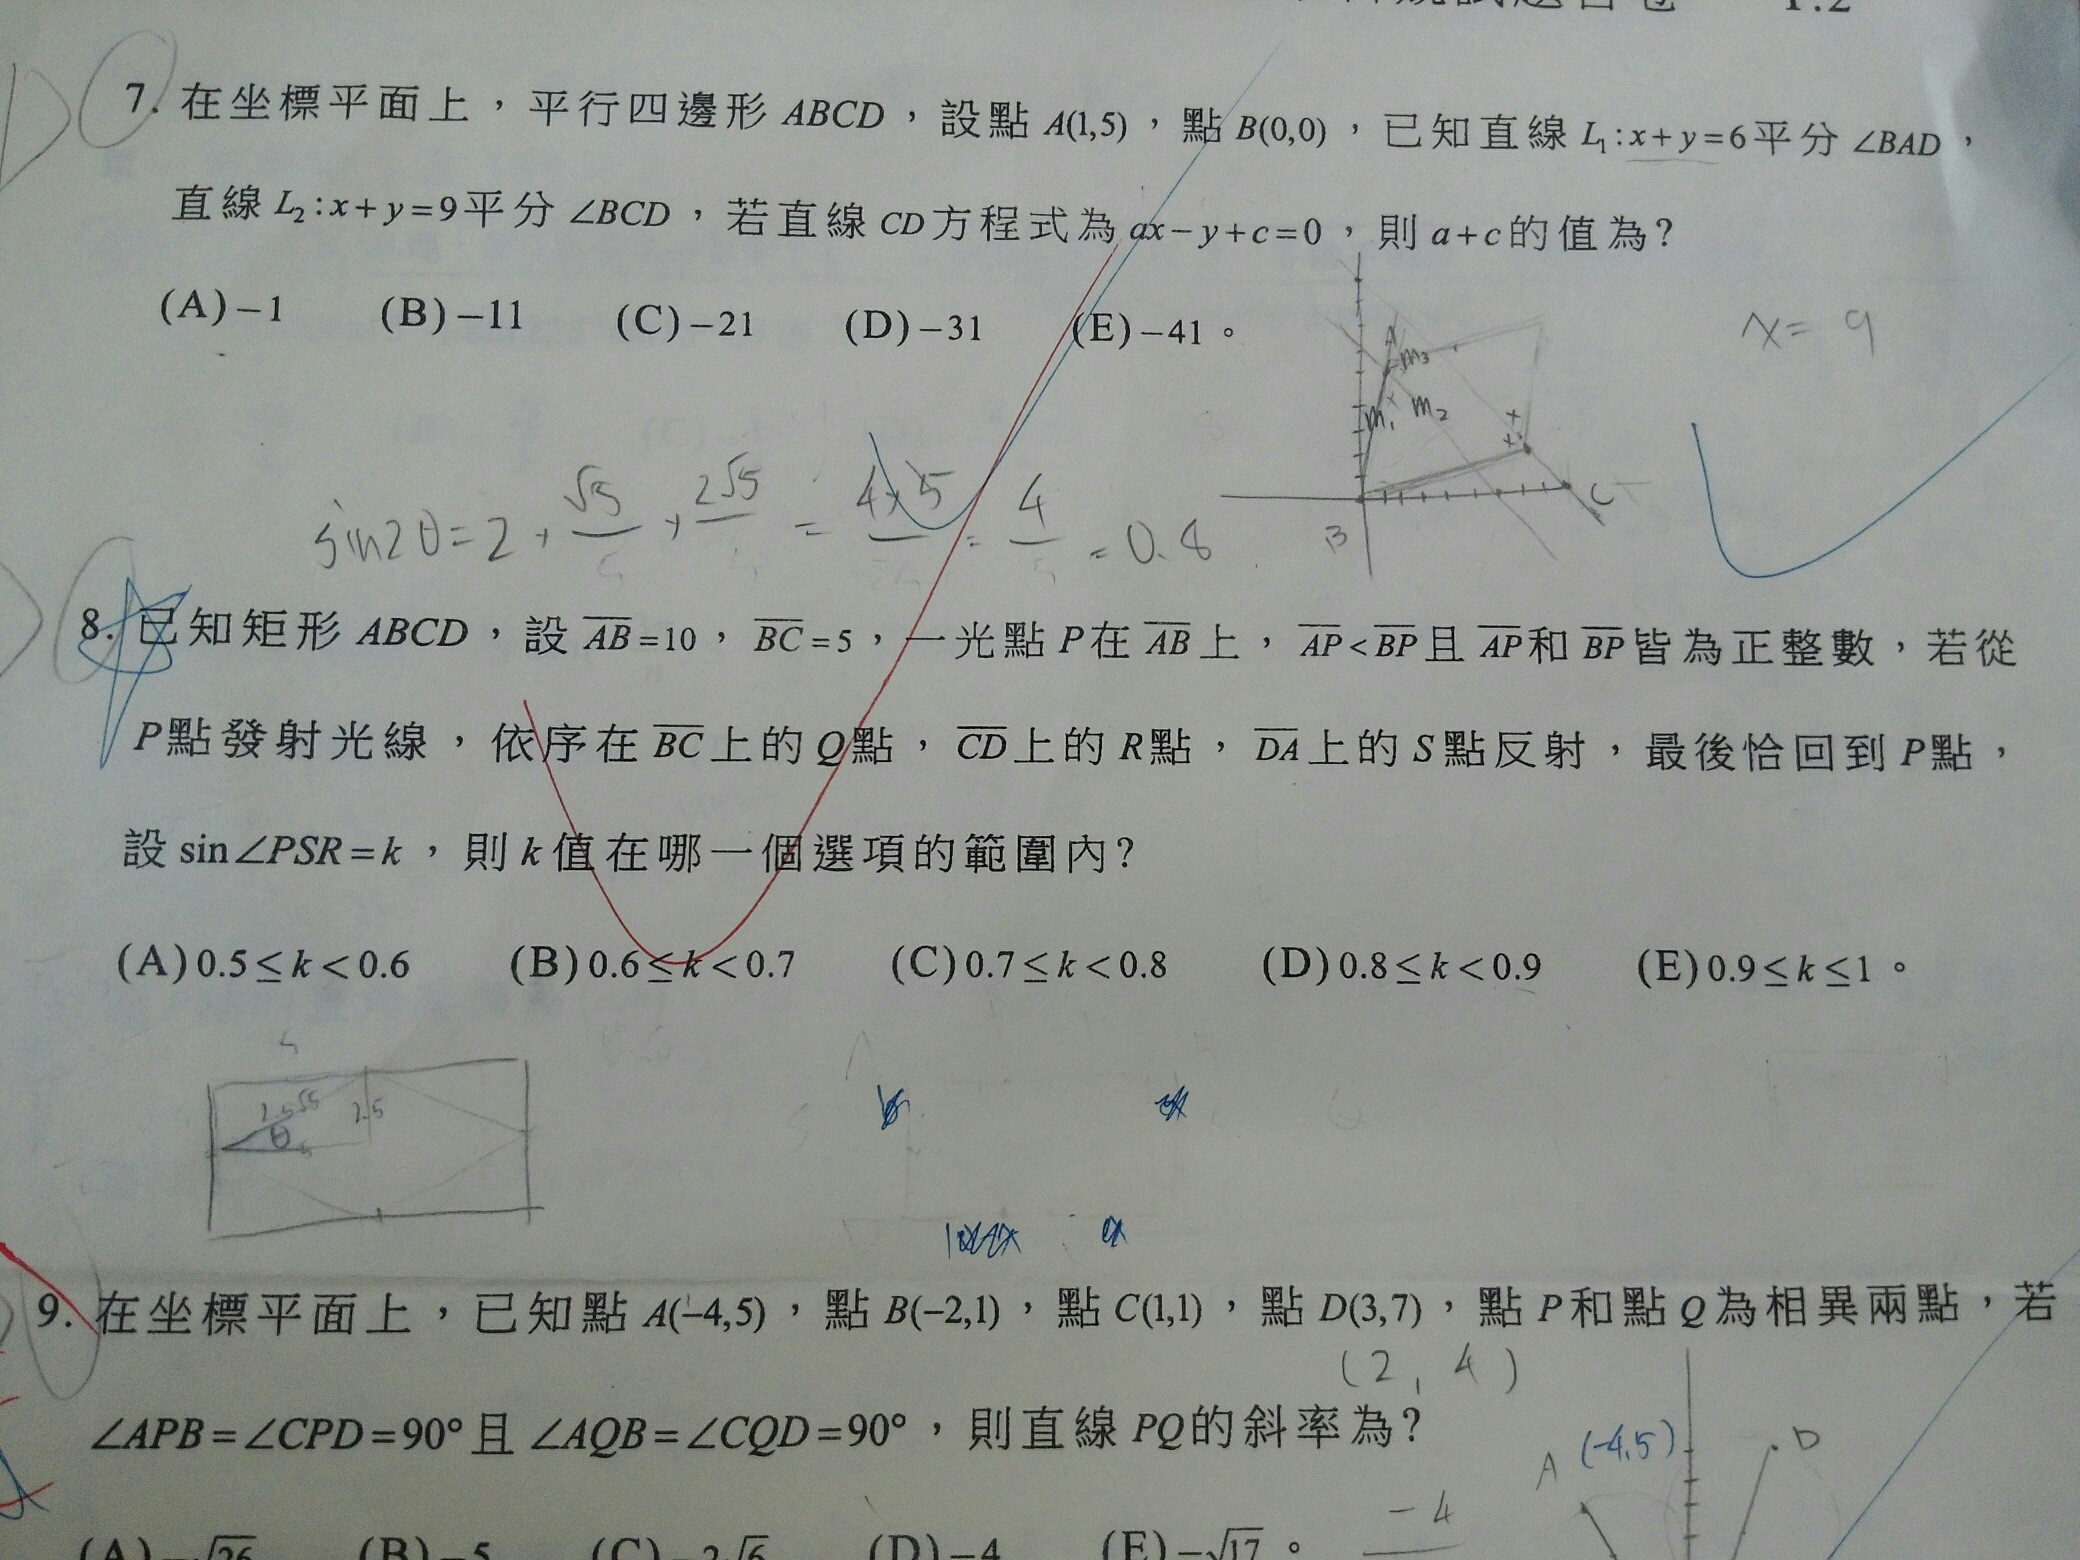 P.2
7. 在坐標平面上，平行四邊形 ABCD，設點 A(1,5)，點 B(0,0)，已知直線 L₁:x+y=6平分 ∠BAD，
直線 L₂:x+y=9平分 ∠BCD，若直線 CD方程式為 ax−y+c=0，則 a+c的值為?
(A)−1 (B)−11 (C)−21 (D)−31 (E)−41。
x= 9
A
m₃
m₁ m₂
B
C
sin2θ=2
√5
2√5
=
4×5
=
4
5
=0.8
8. 已知矩形 ABCD，設 A̅B̅=10，B̅C̅=5，一光點 P在 A̅B̅上，A̅P̅<B̅P̅且 A̅P̅和 B̅P̅皆為正整數，若從
P點發射光線，依序在 B̅C̅上的 Q點，C̅D̅上的 R點，D̅A̅上的 S點反射，最後恰回到 P點，
設 sin∠PSR=k，則 k值在哪一個選項的範圍內?
(A)0.5≤k<0.6 (B)0.6≤k<0.7 (C)0.7≤k<0.8 (D)0.8≤k<0.9 (E)0.9≤k≤1。
5
2.5√5 2.5
θ
5
9. 在坐標平面上，已知點 A(−4,5)，點 B(−2,1)，點 C(1,1)，點 D(3,7)，點 P和點 Q為相異兩點，若
(2, 4)
∠APB=∠CPD=90°且 ∠AQB=∠CQD=90°，則直線 PQ的斜率為?
A (-4,5) D
-4
(A)−√26 (B)−5 (C)−2√6 (D)−4 (E)−√17。